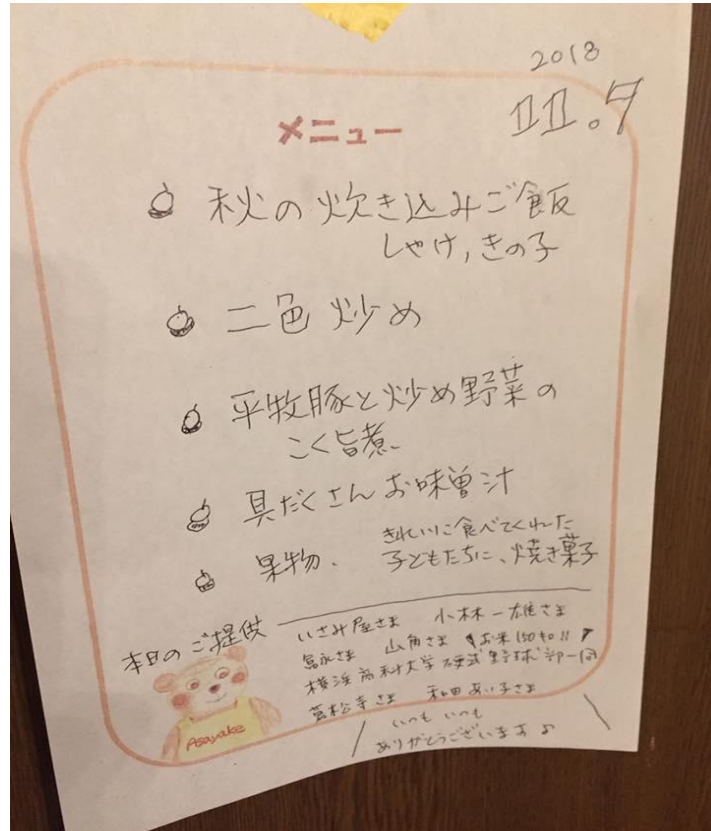 2018
11.7
メニュー
秋の炊き込みご飯
しゃけ,きの子
二色炒め
平牧豚と炒め野菜の
こく旨煮
具だくさんお味噌汁
果物、
きれいに食べてくれた
子どもたちに、焼き菓子
本日のご提供
いさみ屋さま 小林一雄さま
冨永さま 山角さま お米150キロ!!
横浜商科大学硬式野球部一同
松寺さま 和田あい子さま
いつもいつも
ありがとうございます♪
Asayake